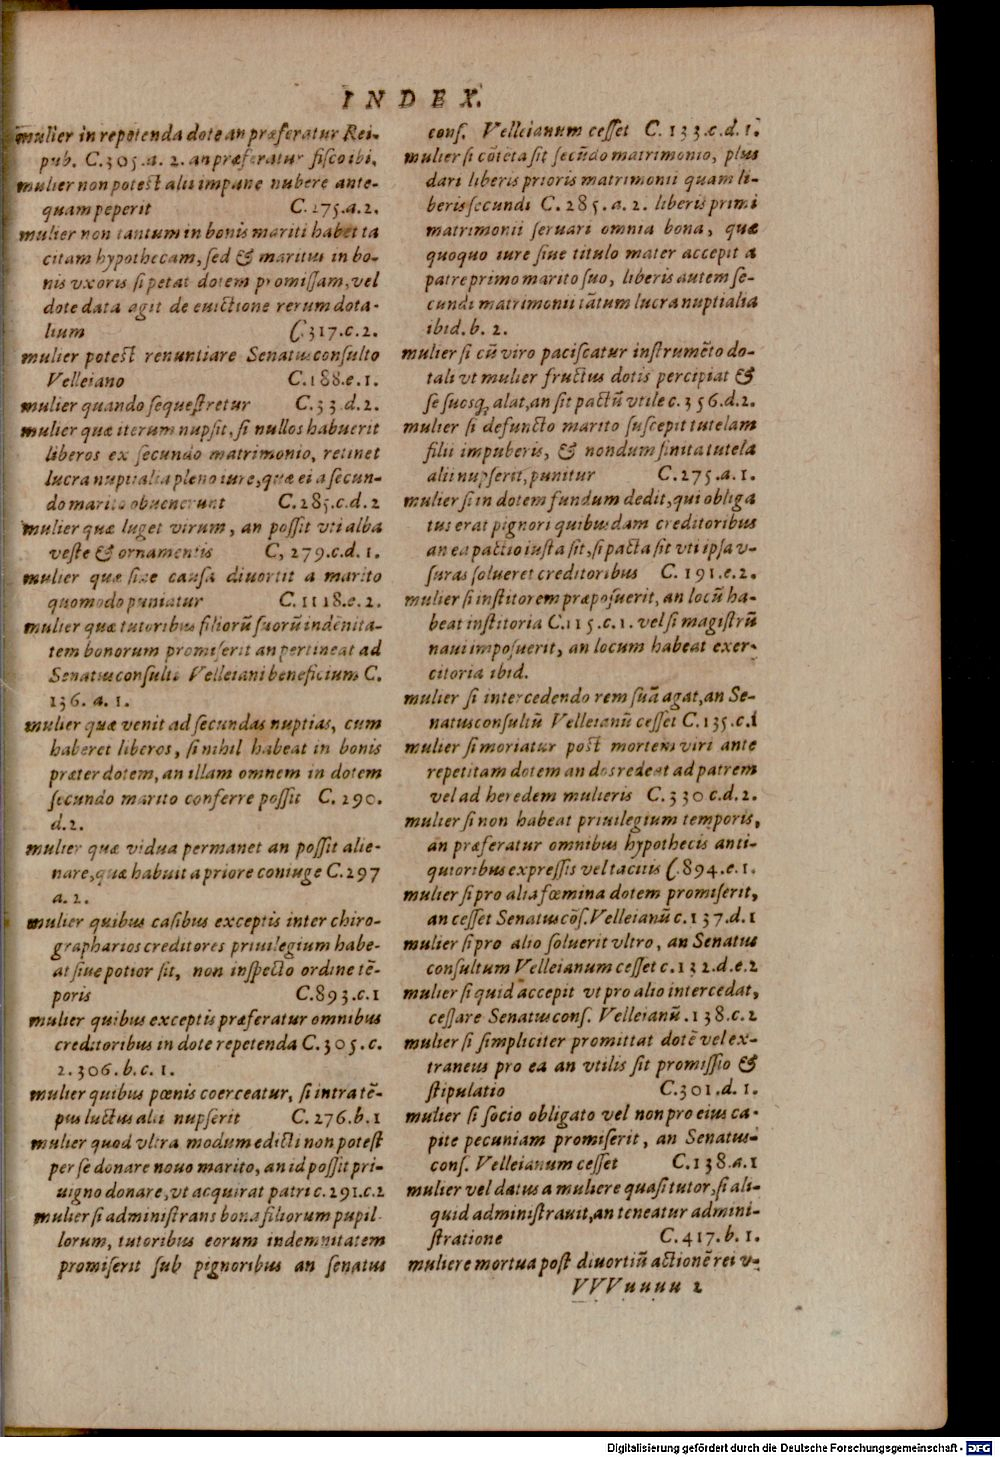 INDEX.
mulier in repetenda dote an præferatur Rei-
pub. C.305.a.2. an præferatur fisco ibi.
mulier non potest alii impune nubere ante-
quam peperit C.275.a.2.
mulier non tantum in bonis mariti habet ta
citam hypothecam, sed & maritus in bo-
nis vxoris si petat dotem promissam, vel
dote data agit de euictione rerum dota-
lium C.317.c.2.
mulier potest renuntiare Senatusconsulto
Velleiano C.188.e.1.
mulier quando sequestretur C.33.d.2.
mulier quæ iterum nupsit, si nullos habuerit
liberos ex secundo matrimonio, retinet
lucra nuptialia pleno iure, quæ ei a secun-
do marito obuenerunt C.285.c.d.2
mulier quæ luget virum, an possit vti alba
veste & ornamentis C, 279.c.d.1.
mulier quæ sine causa diuortit a marito
quomodo puniatur C.1118.e.2.
mulier quæ tutoribus filiorũ suorũ indenita-
tem bonorum promiserit an pertineat ad
Senatusconsulti Velleiani beneficium C.
136.a.1.
mulier quæ venit ad secundas nuptias, cum
haberet liberos, si nihil habeat in bonis
præter dotem, an illam omnem in dotem
secundo marito conferre possit C.290.
d.2.
mulier quæ vidua permanet an possit alie-
nare, quæ habuit a priore coniuge C.297
a.2.
mulier quibus casibus exceptis inter chiro-
grapharios creditores priuilegium habe-
at siue potior sit, non inspecto ordine tẽ-
poris C.893.c.1
mulier quibus exceptis præferatur omnibus
creditoribus in dote repetenda C.305.c.
2.306.b.c.1.
mulier quibus pœnis coerceatur, si intra tẽ-
pus luctus alii nupserit C.276.b.1
mulier quod vltra modum edicti non potest
per se donare nouo marito, an id possit pri-
uigno donare, vt acquirat patri c.291.c.2
mulier si administrans bona filiorum pupil-
lorum, tutoribus eorum indemnitatem
promiserit sub pignoribus an senatus
cons. Velleianum cesset C.133.c.d.1.
mulier si cõtẽta sit secũdo matrimonio, plus
dari liberis prioris matrimonii quam li-
beris secundi C.285.a.2. liberis primi
matrimonii seruari omnia bona, quæ
quoquo iure siue titulo mater accepit a
patre primo marito suo, liberis autem se-
cundi matrimonii tãtum lucra nuptialia
ibid.b.2.
mulier si cũ viro paciscatur instrumẽto do-
tali vt mulier fructus dotis percipiat &
se suosq; alat, an sit pactũ vtile c.356.d.2.
mulier si defuncto marito suscepit tutelam
filii impuberis, & nondum finita tutela
alii nupserit, punitur C.275.a.1.
mulier si in dotem fundum dedit, qui obliga
tus erat pignori quibusdam creditoribus
an ea pactio iusta sit, si pacta sit vti ipsa v-
suras solueret creditoribus C.191.e.2.
mulier si institorem præposuerit, an locũ ha-
beat institoria C.115.c.1. vel si magistrũ
naui imposuerit, an locum habeat exer-
citoria ibid.
mulier si intercedendo rem suã agat, an Se-
natusconsultũ Velleianũ cesset C.135.c.1
mulier si moriatur post mortem viri ante
repetitam dotem an dos redeat ad patrem
vel ad heredem mulieris C.330 c.d.2.
mulier si non habeat priuilegium temporis,
an præferatur omnibus hypothecis anti-
quioribus expressis vel tacitis C.894.e.1.
mulier si pro alia fœmina dotem promiserit,
an cesset Senatus cõs. Velleianũ c.137.d.1
mulier si pro alio soluerit vltro, an Senatus
consultum Velleianum cesset c.132.d.e.2
mulier si quid accepit vt pro alio intercedat,
cessare Senatuscons. Velleianũ.138.c.2
mulier si simpliciter promittat dotẽ vel ex-
traneus pro ea an vtilis sit promissio &
stipulatio C.301.d.1.
mulier si socio obligato vel non pro eius ca-
pite pecuniam promiserit, an Senatus-
cons. Velleianum cesset C.138.a.1
mulier vel datus a muliere quasi tutor, si ali-
quid administrauit, an teneatur admini-
stratione C.417.b.1.
muliere mortua post diuortiũ actionẽ rei v-
VVVuuuu 2
Digitalisierung gefördert durch die Deutsche Forschungsgemeinschaft - DFG